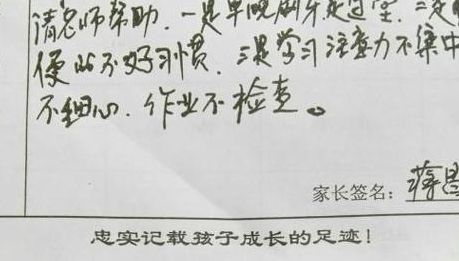 请老师帮助．一是早晚刷牙是过堂．二是
便的不好习惯．三是学习注意力不集中
不细心．作业不检查。
家长签名：蒋昌
忠实记载孩子成长的足迹！